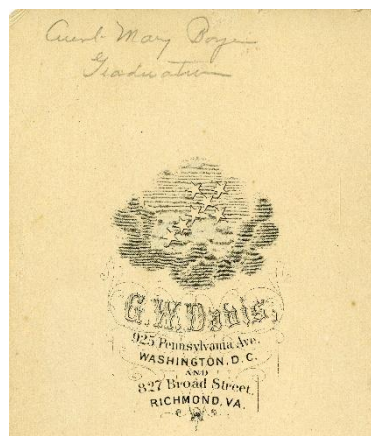 Aunt Mary Boyer
Graduation
G.W. Davis,
925 Pennsylvania Ave.
WASHINGTON, D.C.
AND
827 Broad Street,
RICHMOND, VA.